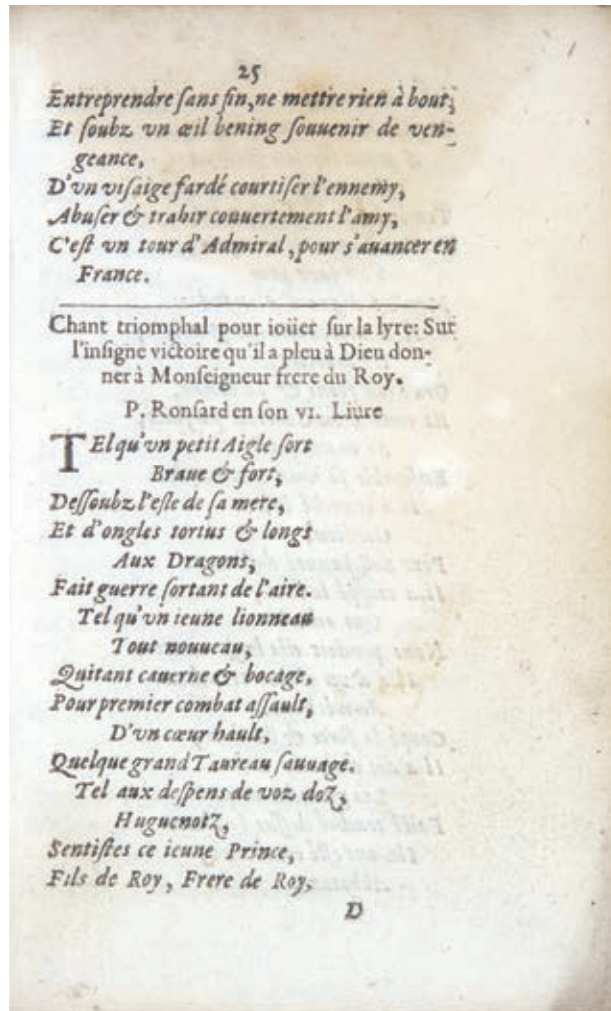 25
Entreprendre ſans fin, ne mettre rien à bout,
Et ſoubz vn œil bening ſouuenir de ven-
geance,
D'vn viſaige fardé courtiſer l'ennemy,
Abuſer & trahir couuertement l'amy,
C'eſt vn tour d'Admiral, pour s'auancer en
France.
Chant triomphal pour ioüer ſur la lyre: Sur
l'inſigne victoire qu'il a pleu à Dieu don-
ner à Monſeigneur frere du Roy.
P. Ronſard en ſon VI. Liure
TEl qu'vn petit Aigle ſort
Braue & fort,
Deſſoubz l'eſle de ſa mere,
Et d'ongles tortus & longs
Aux Dragons,
Fait guerre ſortant de l'aire.
Tel qu'vn ieune lionneau
Tout nouueau,
Quitant cauerne & bocage,
Pour premier combat aſſault,
D'vn cœur hault,
Quelque grand Taureau ſauuage.
Tel aux deſpens de voz doz,
Huguenotz,
Sentiſtes ce ieune Prince,
Fils de Roy, Frere de Roy,
D